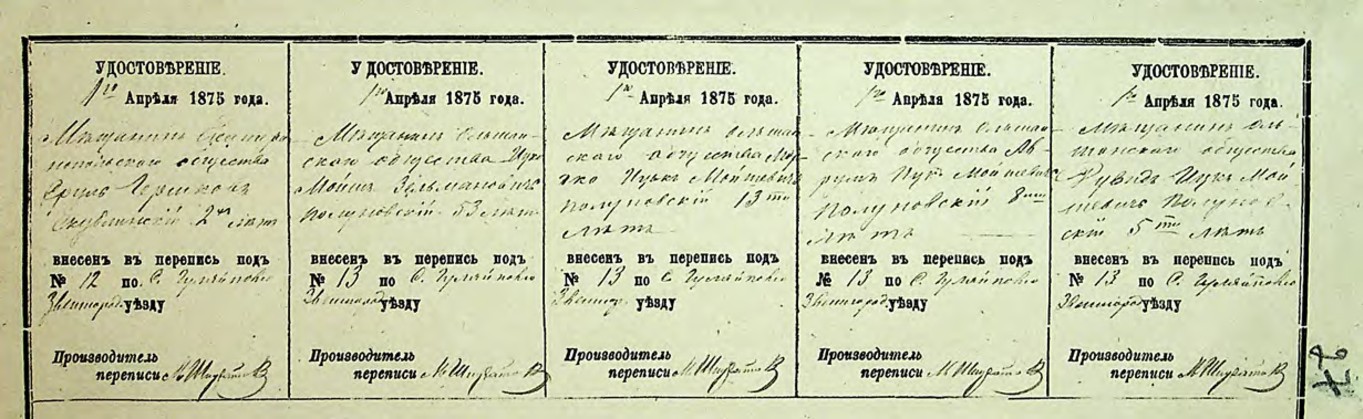 УДОСТОВѢРЕНІЕ.
1го Апрѣля 1875 года.
Мѣщанинъ
общества
Гершковъ
2хъ лѣтъ
внесенъ въ перепись подъ
№ 12 по С.
Звенигород. уѣзду
Производитель
переписи М
УДОСТОВѢРЕНІЕ.
1го Апрѣля 1875 года.
Мѣщанинъ Ольшан-
скаго общества Ицко
Мойше Зельмановичъ
Полуновскій 53 лѣтъ
внесенъ въ перепись подъ
№ 13 по С.
Звенигород. уѣзду
Производитель
переписи М
УДОСТОВѢРЕНІЕ.
1го Апрѣля 1875 года.
Мѣщанинъ Ольшан-
скаго общества
Ицкъ Мойшевичъ
Полуновскій 13ти
лѣтъ
внесенъ въ перепись подъ
№ 13 по С.
Звенигор. уѣзду
Производитель
переписи М
УДОСТОВѢРЕНІЕ.
1го Апрѣля 1875 года.
Мѣщанинъ Ольшан-
скаго общества Ав-
румъ Ицк Мойшевичъ
Полуновскій 8ми
лѣтъ
внесенъ въ перепись подъ
№ 13 по С.
Звенигород. уѣзду
Производитель
переписи М
УДОСТОВѢРЕНІЕ.
1го Апрѣля 1875 года.
Мѣщанинъ Оль-
шанскаго общества
Ицкъ Мой
шевичъ Полунов-
скій 5ти лѣтъ
внесенъ въ перепись подъ
№ 13 по С.
Звенигород. уѣзду
Производитель
переписи М